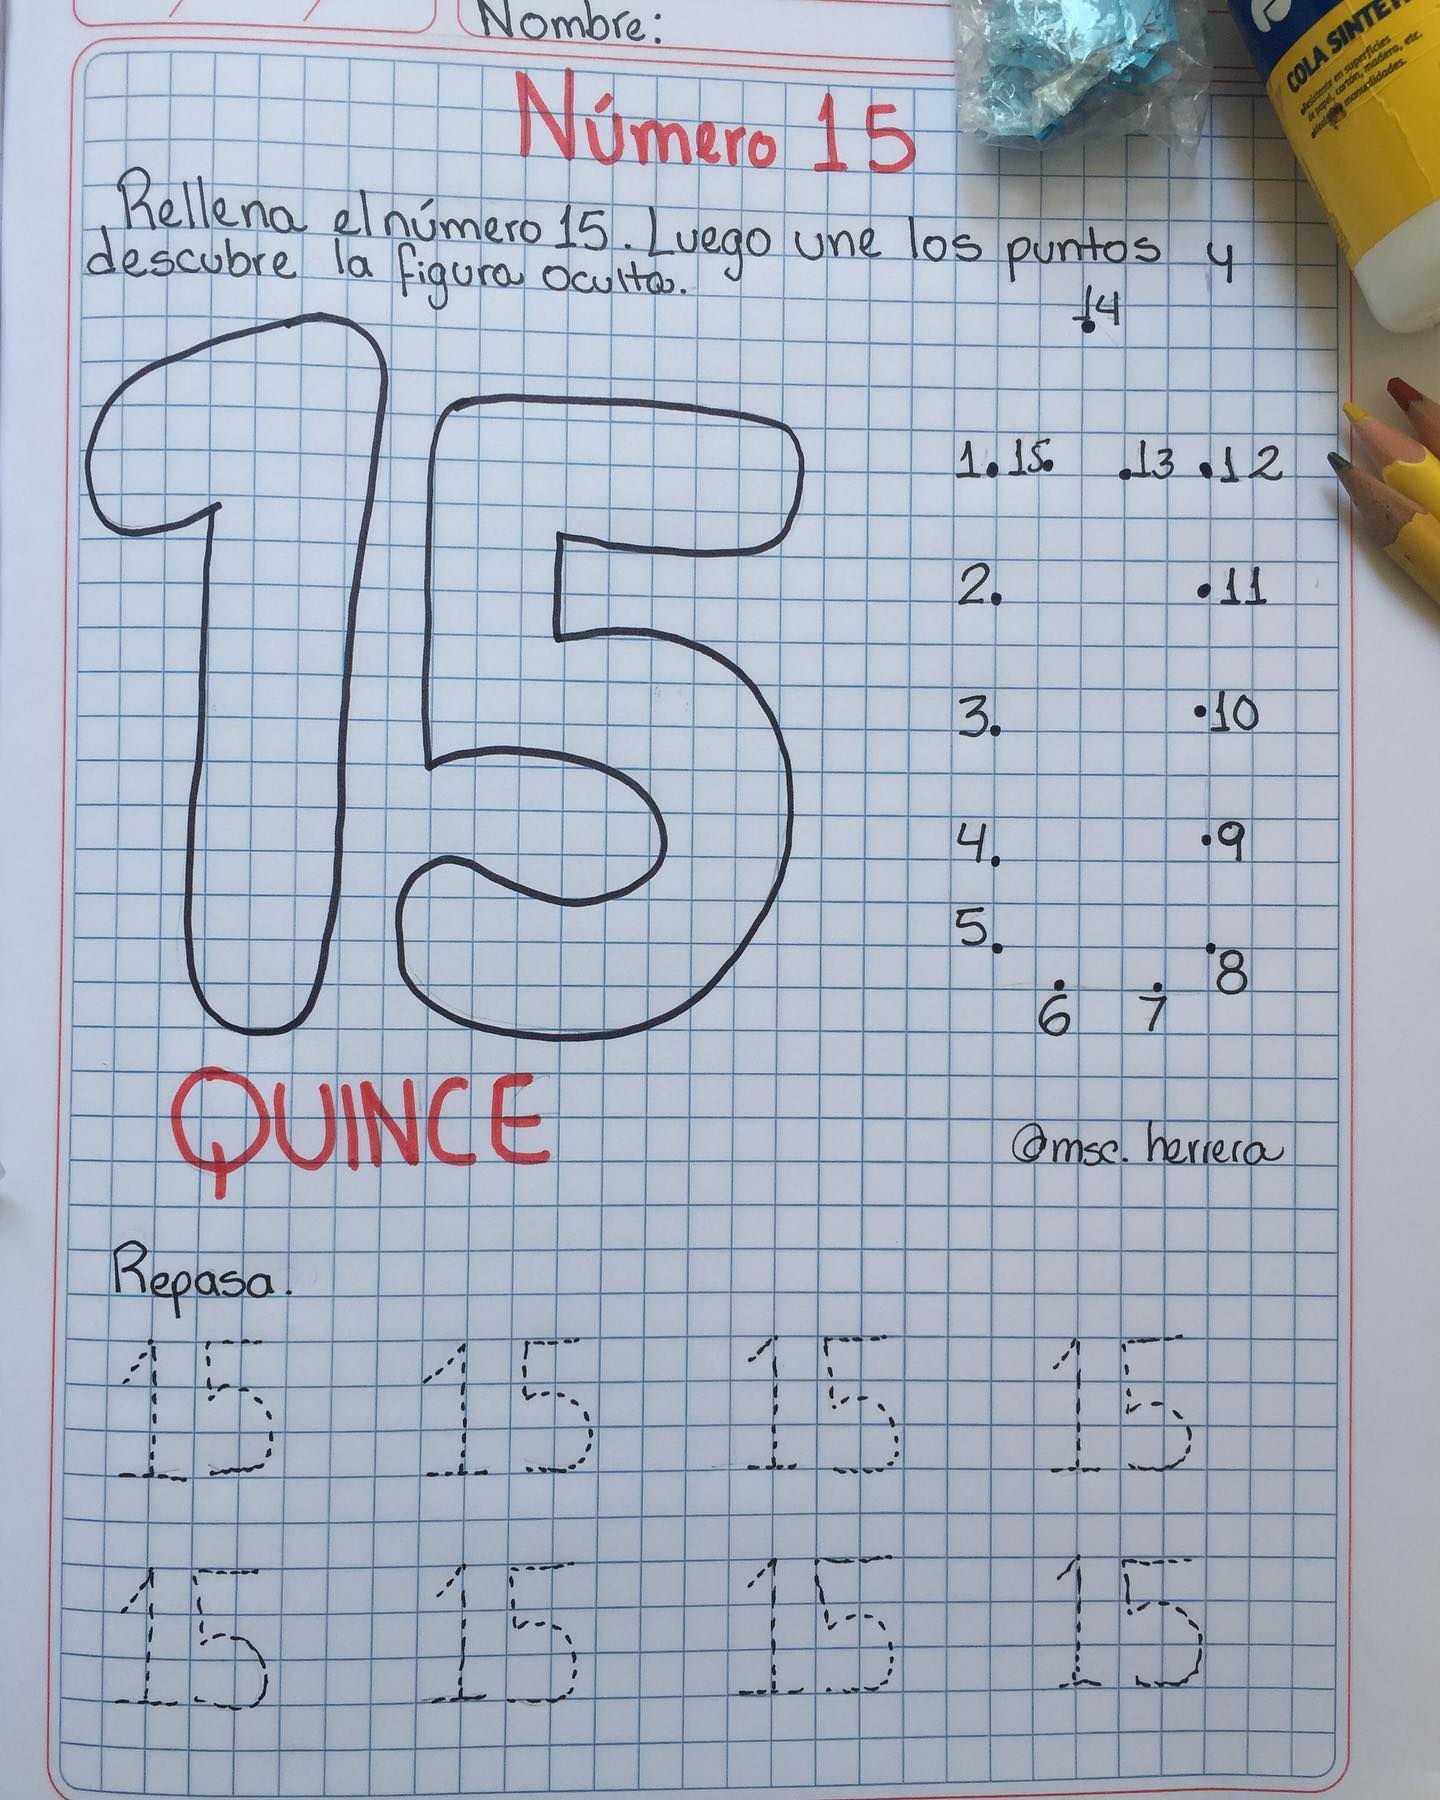 Nombre:
COLA SINTÉT
Resistente en superficies
de papel, cartón, madera, etc.
manualidades.
Número 15
Rellena el número 15. Luego une los puntos y
descubre la figura oculta.
14
1. 15. .13 .12
2. .11
3. .10
4. .9
5. 8
6 7
15
QUINCE
@msc. herrera
Repasa.
15 15 15 15
15 15 15 15